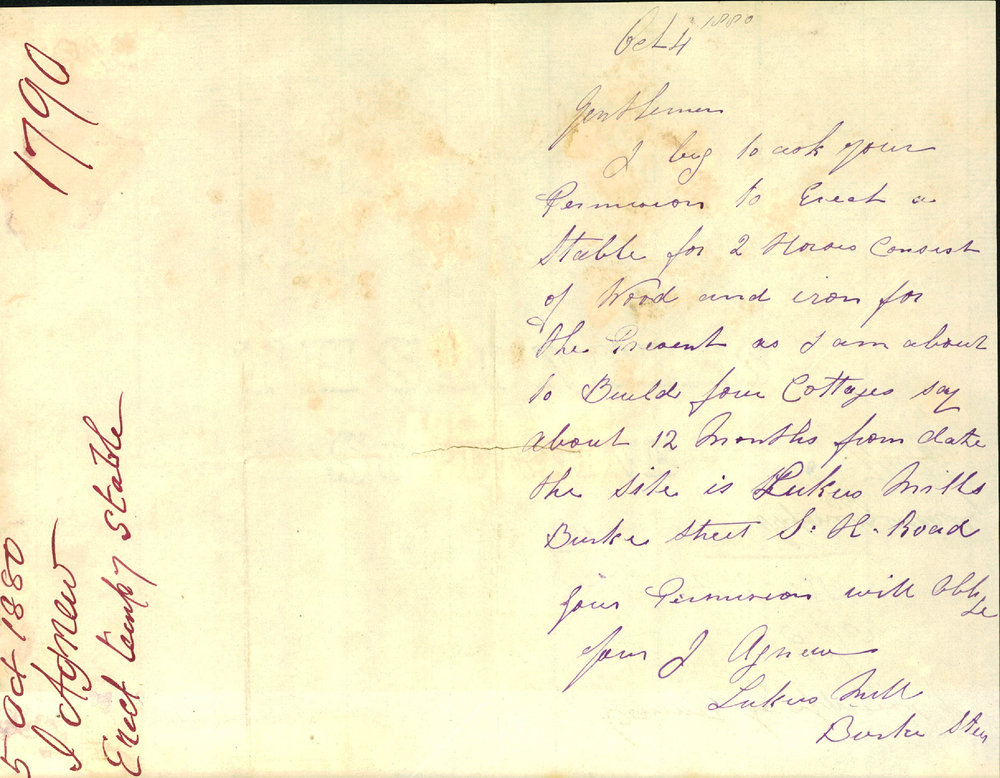 Oct 4 1880
Gentlemen
I beg to ask your
Permission to Erect a
Stable for 2 Horses Consist
of Wood and iron for
the Present as I am about
to Build four Cottages say
about 12 Months from date
the Site is Lukus Mills
Burke Street S. H. Road
your Permission will
yours J Agnew
Lukus Mill
Burke
1790
5 Oct 1880
J Agnew
Erect temp'y Stable